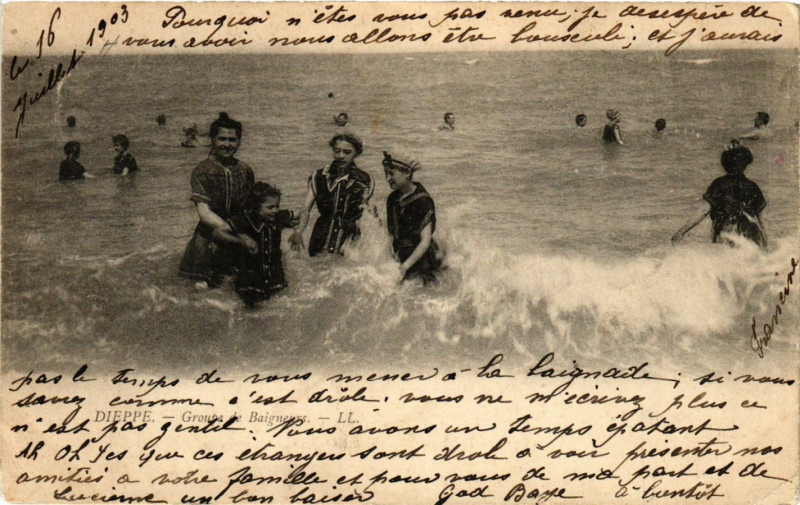 le 16
Juillet 1903
Pourquoi n'êtes vous pas venu; je desespère de
vous avoir nous allons être bousculé; et j'aurais
Francine
pas le temps de vous mener à la baignade; si vous
savez comme c'est drôle. vous ne m'écrivez plus ce
DIEPPE. — Groupe de Baigneurs. — LL.
n'est pas gentil. Nous avons un temps épatant
Ah Oh Yes que ces étrangers sont drole à voir présenter nos
amitiés a votre famille et pour vous de ma part et de
Lucienne un bon baiser God Baye à bientôt